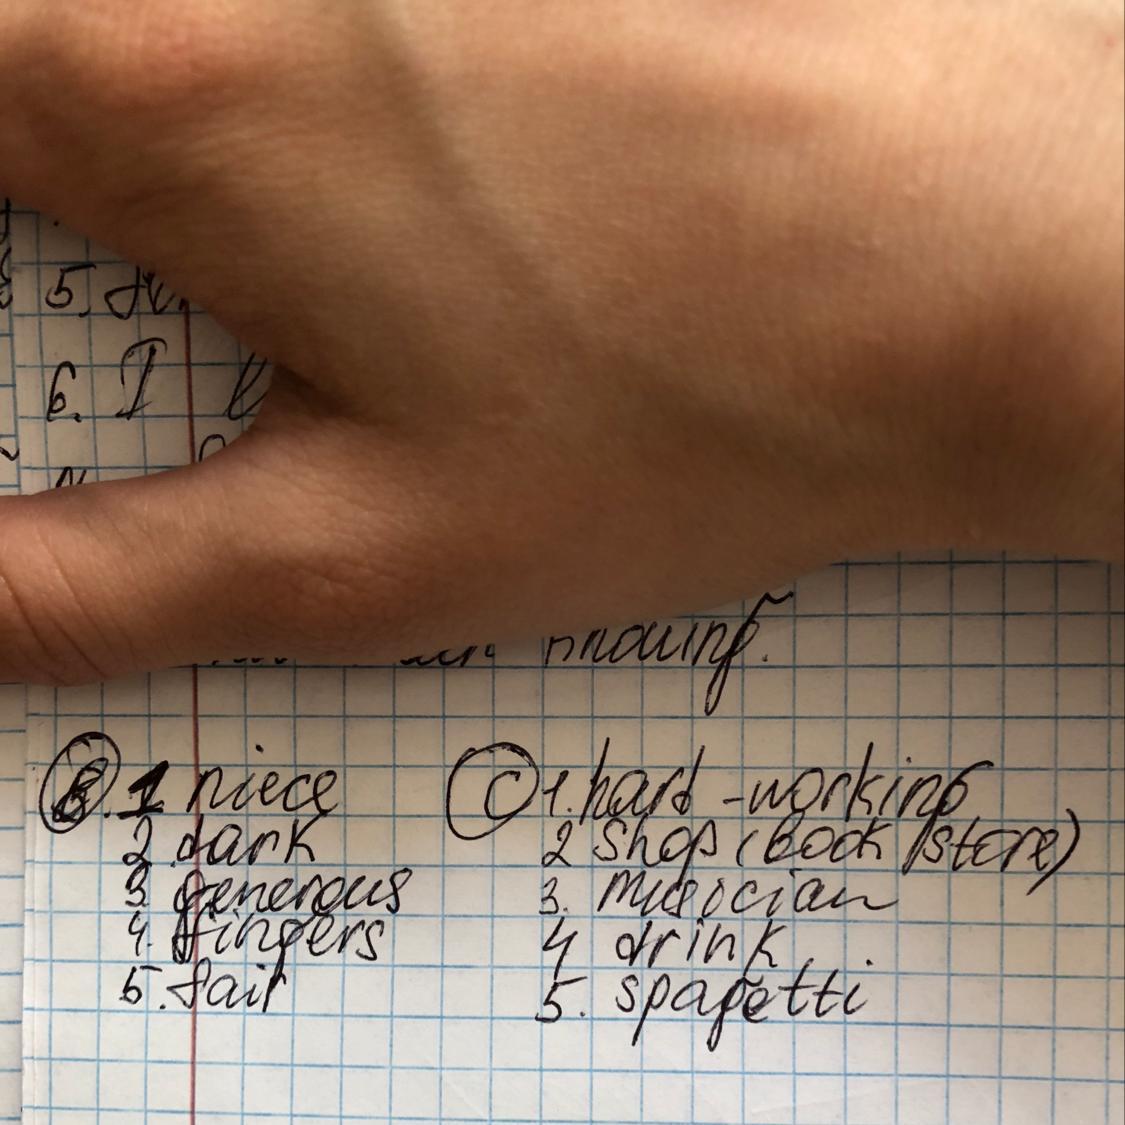 5.
6. I
knowing.
B. 1 niece
2 dark
3. generous
4. fingers
5. fair
C 1. hard-working
2 shop (book store)
3. musician
4 drink
5. spagetti